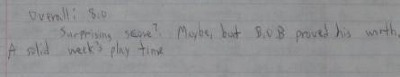 Overall: 8.0
Surprising score? Maybe, but B.O.B proved his worth.
A solid week's play time